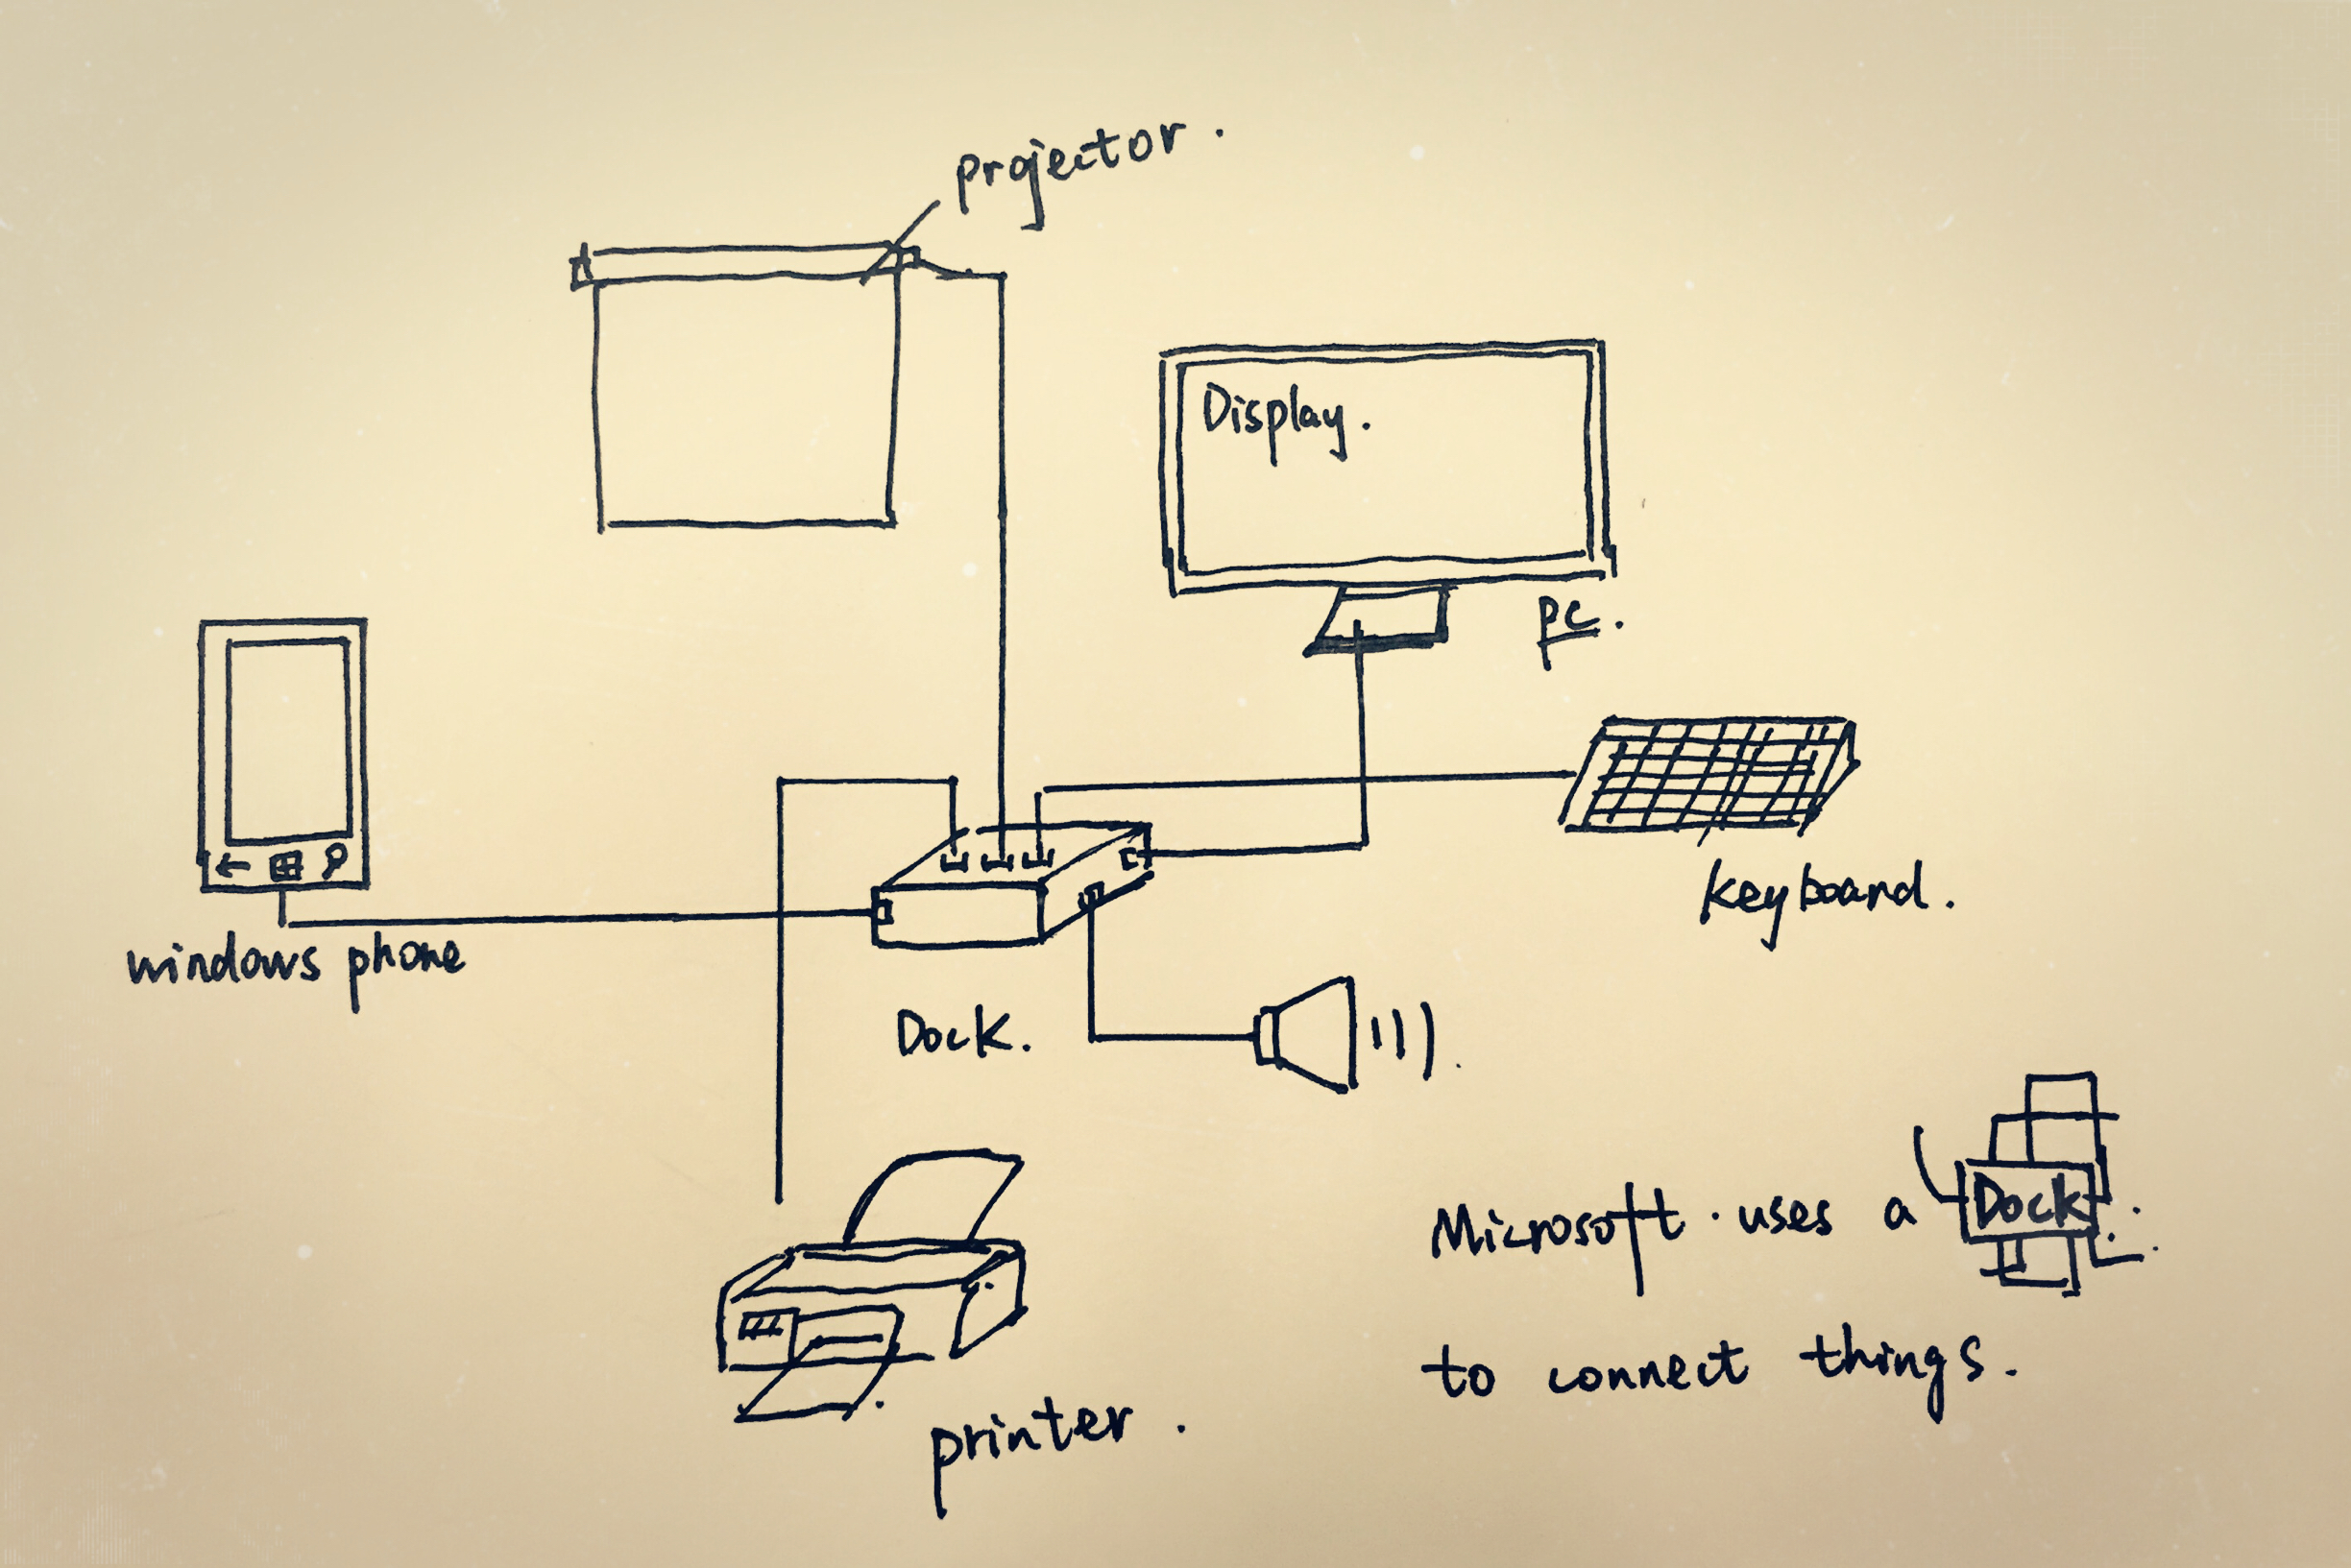 projector.
Display.
pc.
keyboard.
windows phone
Dock.
printer.
Microsoft uses a Dock.
to connect things.